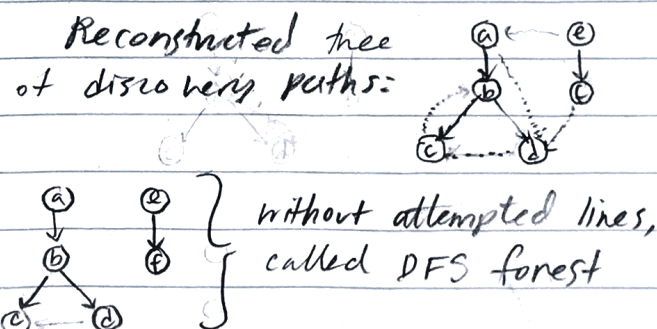 Reconstructed tree
of discovery paths:
a e
b f
c d
a e
b f
c d
without attempted lines,
called DFS forest